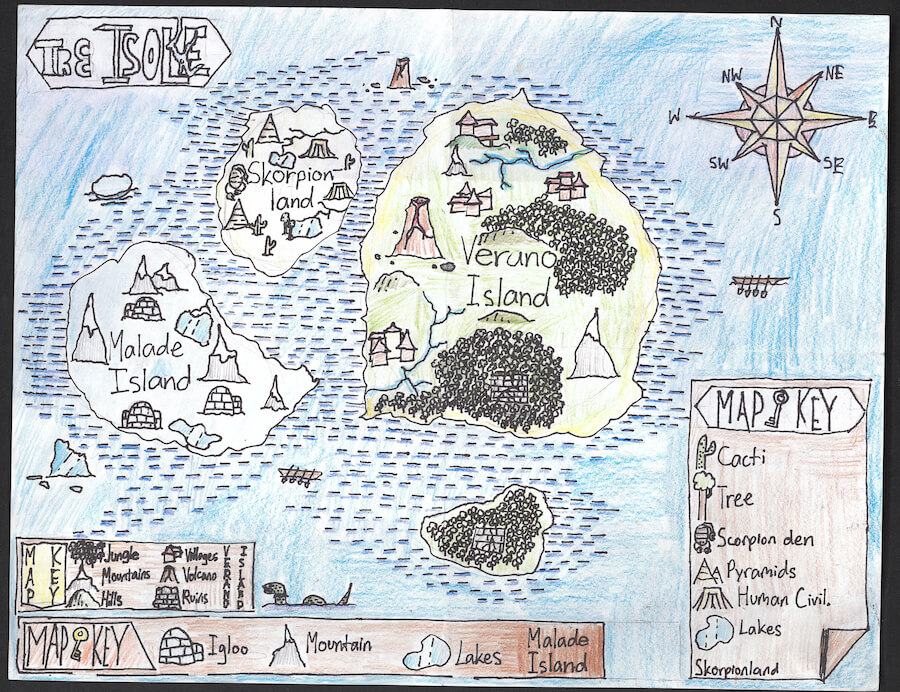 The
N
NW
NE
W
E
SW
SE
S
Skorpion
land
Verano
Island
Malade
Island
MAP KEY
Cacti
Tree
Scorpion den
Pyramids
Human Civil.
Lakes
Skorpionland
MAP
KEY
Jungle
Mountains
Hills
Villages
Volcano
Ruins
VERANO
ISLAND
MAP KEY
Igloo
Mountain
Lakes
Malade
Island